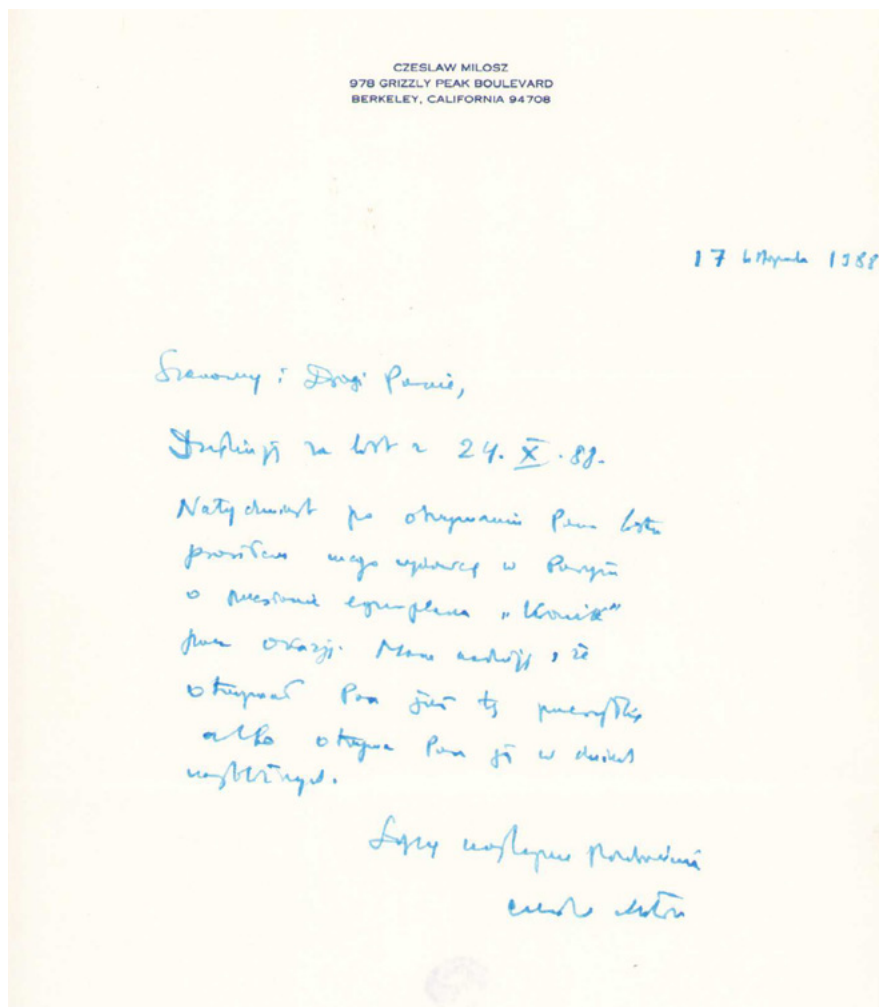 CZESLAW MILOSZ
978 GRIZZLY PEAK BOULEVARD
BERKELEY, CALIFORNIA 94708
17 listopada 1988
Szanowny i Drogi Panie,
Dziękuję za list z 24. X. 88.
Natychmiast po otrzymaniu Pana listu
prosiłem mego wydawcę w Paryżu
o przesłanie egzemplarza „Kronik”
przez okazję. Mam nadzieję, że
otrzymał Pan już tę przesyłkę
albo otrzyma Pan ją w dniach
najbliższych.
Łączę najlepsze pozdrowienia
Czesław Miłosz